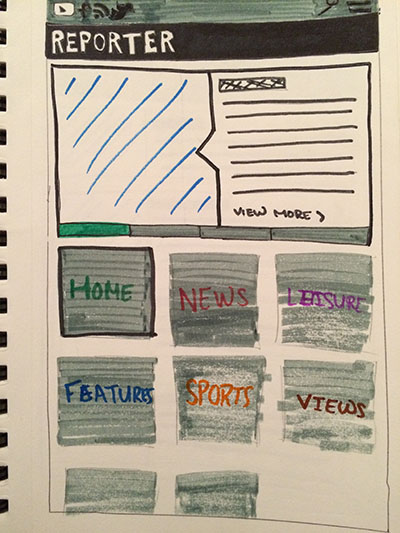 REPORTER
VIEW MORE >
HOME
NEWS
LEISURE
FEATURES
SPORTS
VIEWS